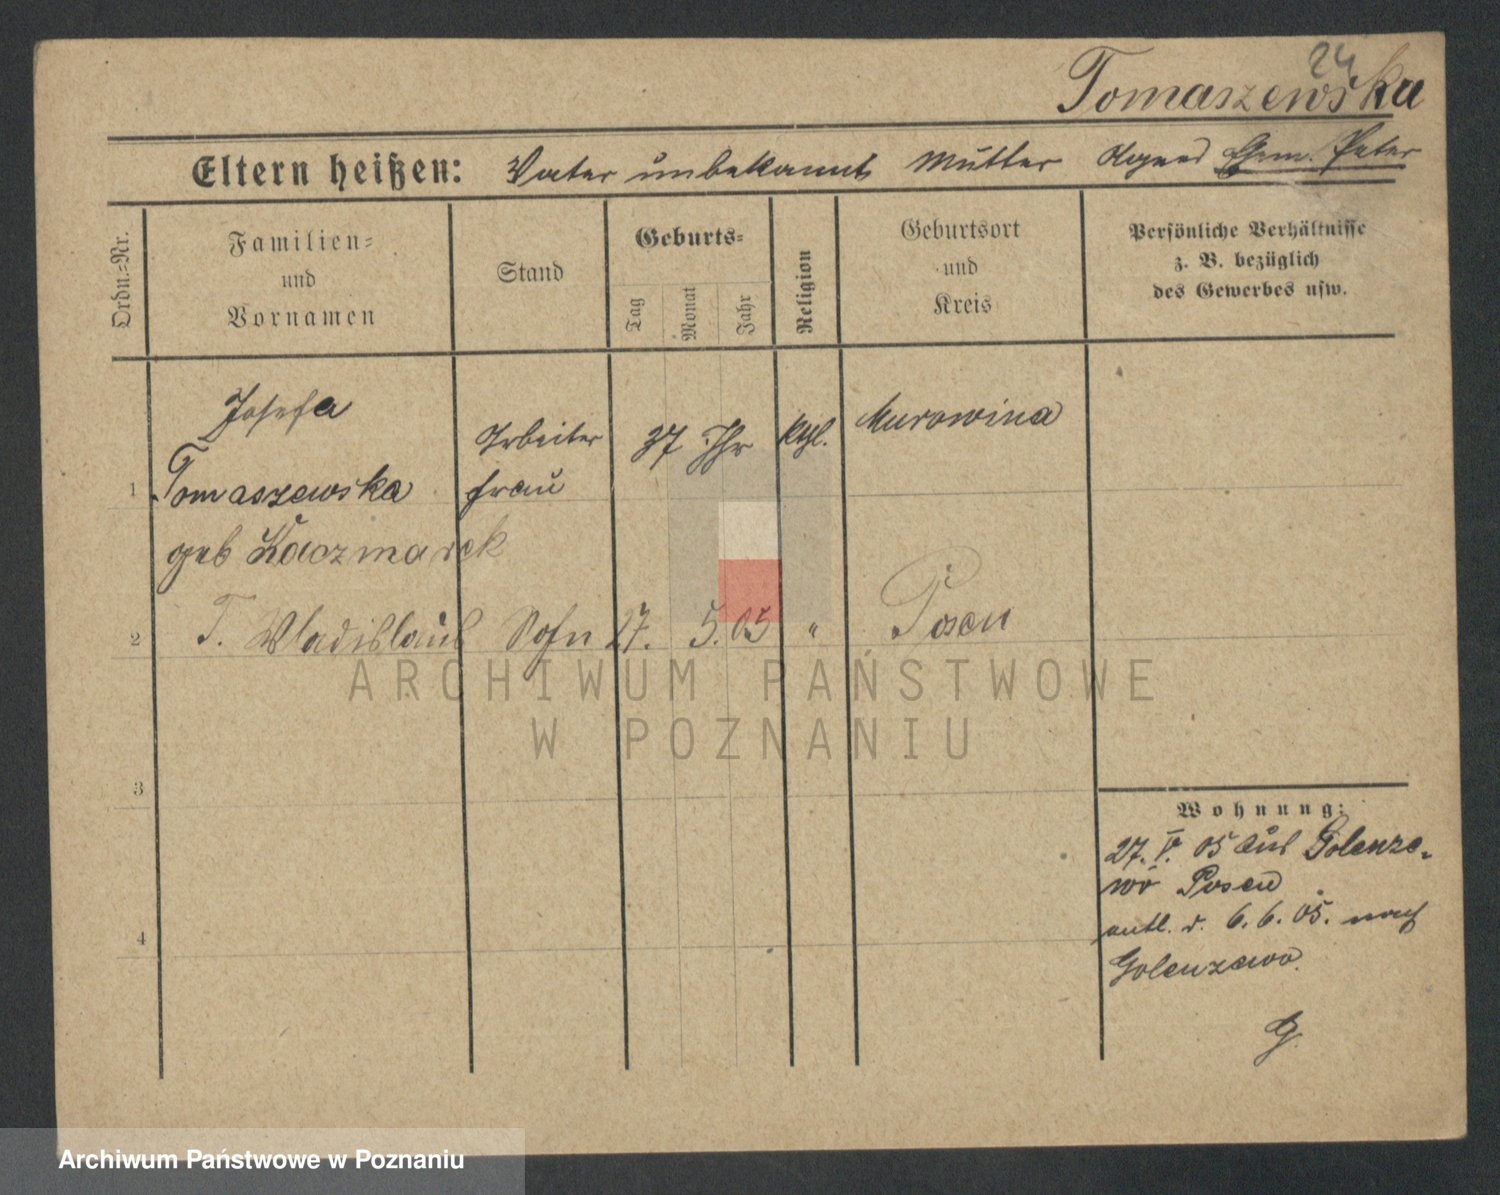 24
Tomaszewska
Eltern heißen: Vater unbekannt Mutter Agnes Gem. Peter
Ordn.-Nr.
Familien-
und
Vornamen
Stand
Geburts-
Tag
Monat
Jahr
Religion
Geburtsort
und
Kreis
Persönliche Verhältnisse
z. B. bezüglich
des Gewerbes usw.
Josefa
Arbeiter 37 Jhr ktl. Murowina
1 Tomaszewska frau
geb Kaczmarek
2 T. Wladislaus Sohn 27. 5. 05 " Posen
ARCHIWUM PAŃSTWOWE
W POZNANIU
3
Wohnung:
27. V. 05 aus Golenze-
wo Posen
4
d. 6.6.05. nach
Golenzewo.
G.
Archiwum Państwowe w Poznaniu